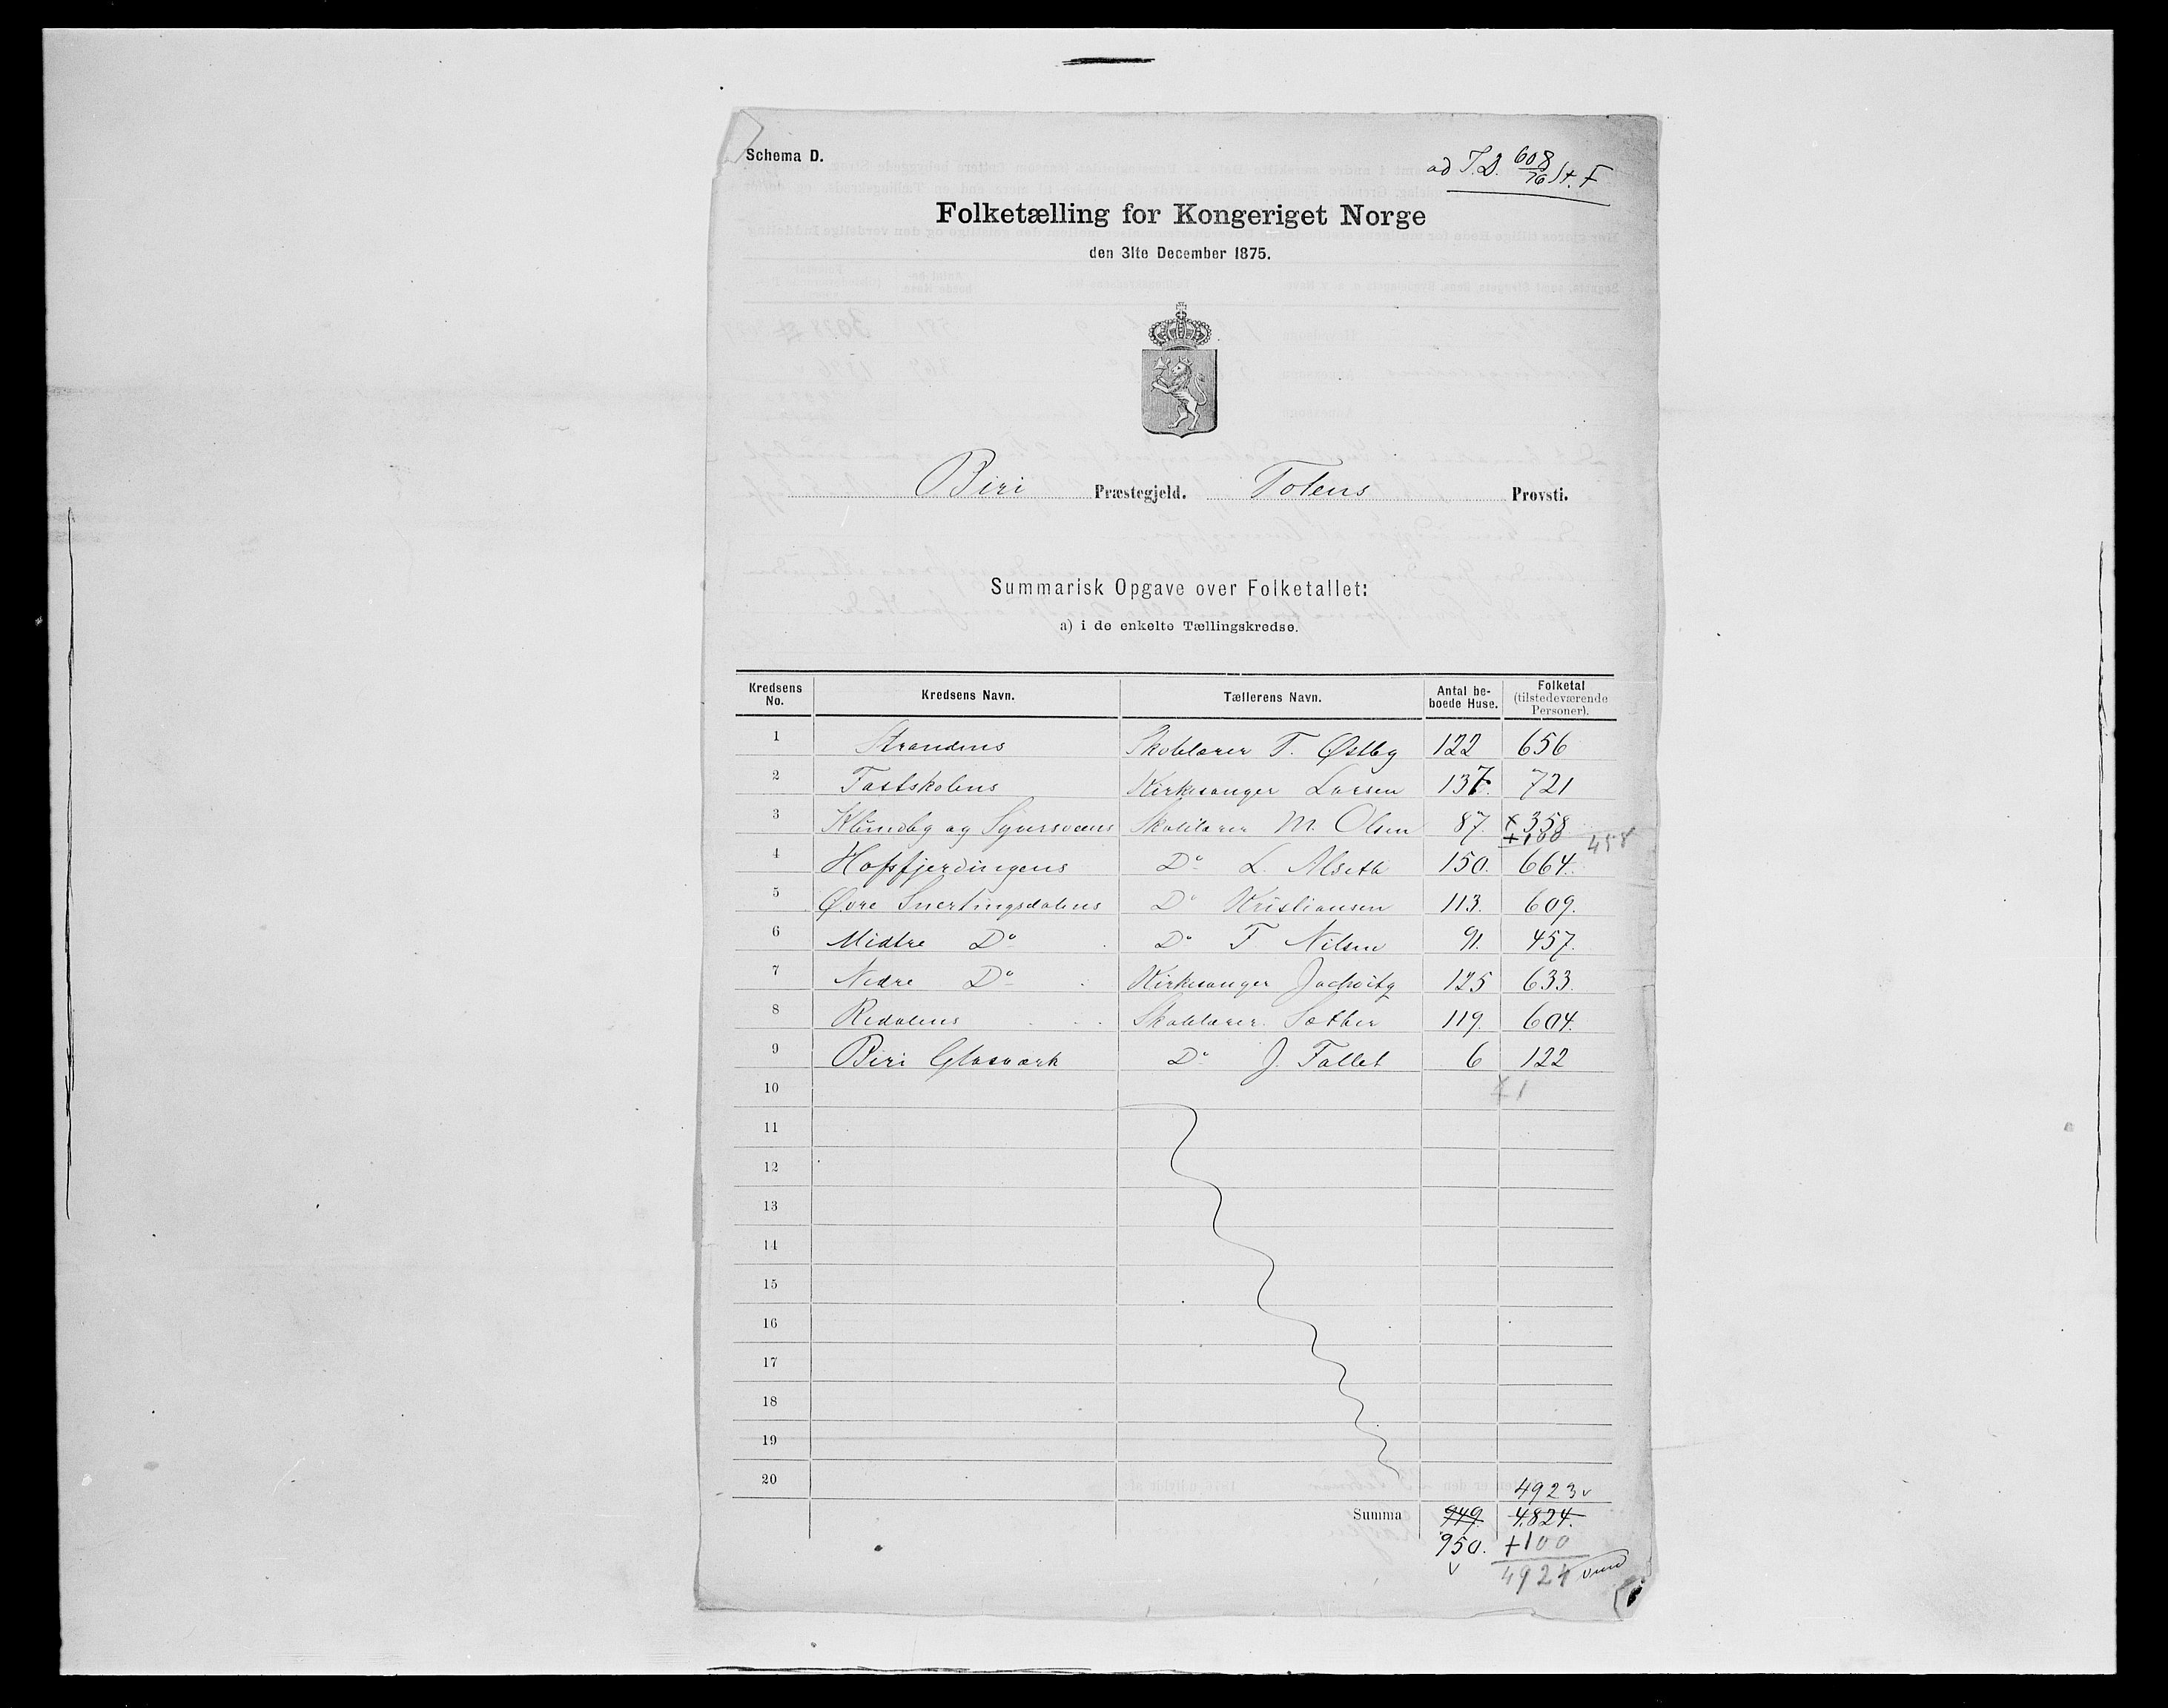 Schema D.
ad T.D. 608/76 St. F
Folketælling for Kongeriget Norge
den 31te December 1875.
Biri Præstegjeld. Totens Provsti.
Summarisk Opgave over Folketallet:
a) i de enkelte Tællingskredse.
Kredsens No. Kredsens Navn. Tællerens Navn. Antal beboede Huse. Folketal (tilstedeværende Personer).
1 Strandens Skolelærer T. Østby 122 656
2 Fastskolens Kirkesanger Larsen 137. 721
3 Klundby og Syversveens Skolelærer M. Olsen 87. × 358 +100 458
4 Hofsfjerdingens Do L. Alseth 150. 664.
5 Øvre Snertingsdalens Do Kristiansen 113. 609.
6 Midtre Do Do F Nilsen 91. 457.
7 Nedre Do Kirkesanger 125 633.
8 Redalens Skolelærer Sether 119. 604.
9 Biri Glasværk Do J. Fallet 6 122
10
11
12
13
14
15
16
17
18
19
20 4923 v
Summa 949. 4824.
950. +100
v 4924